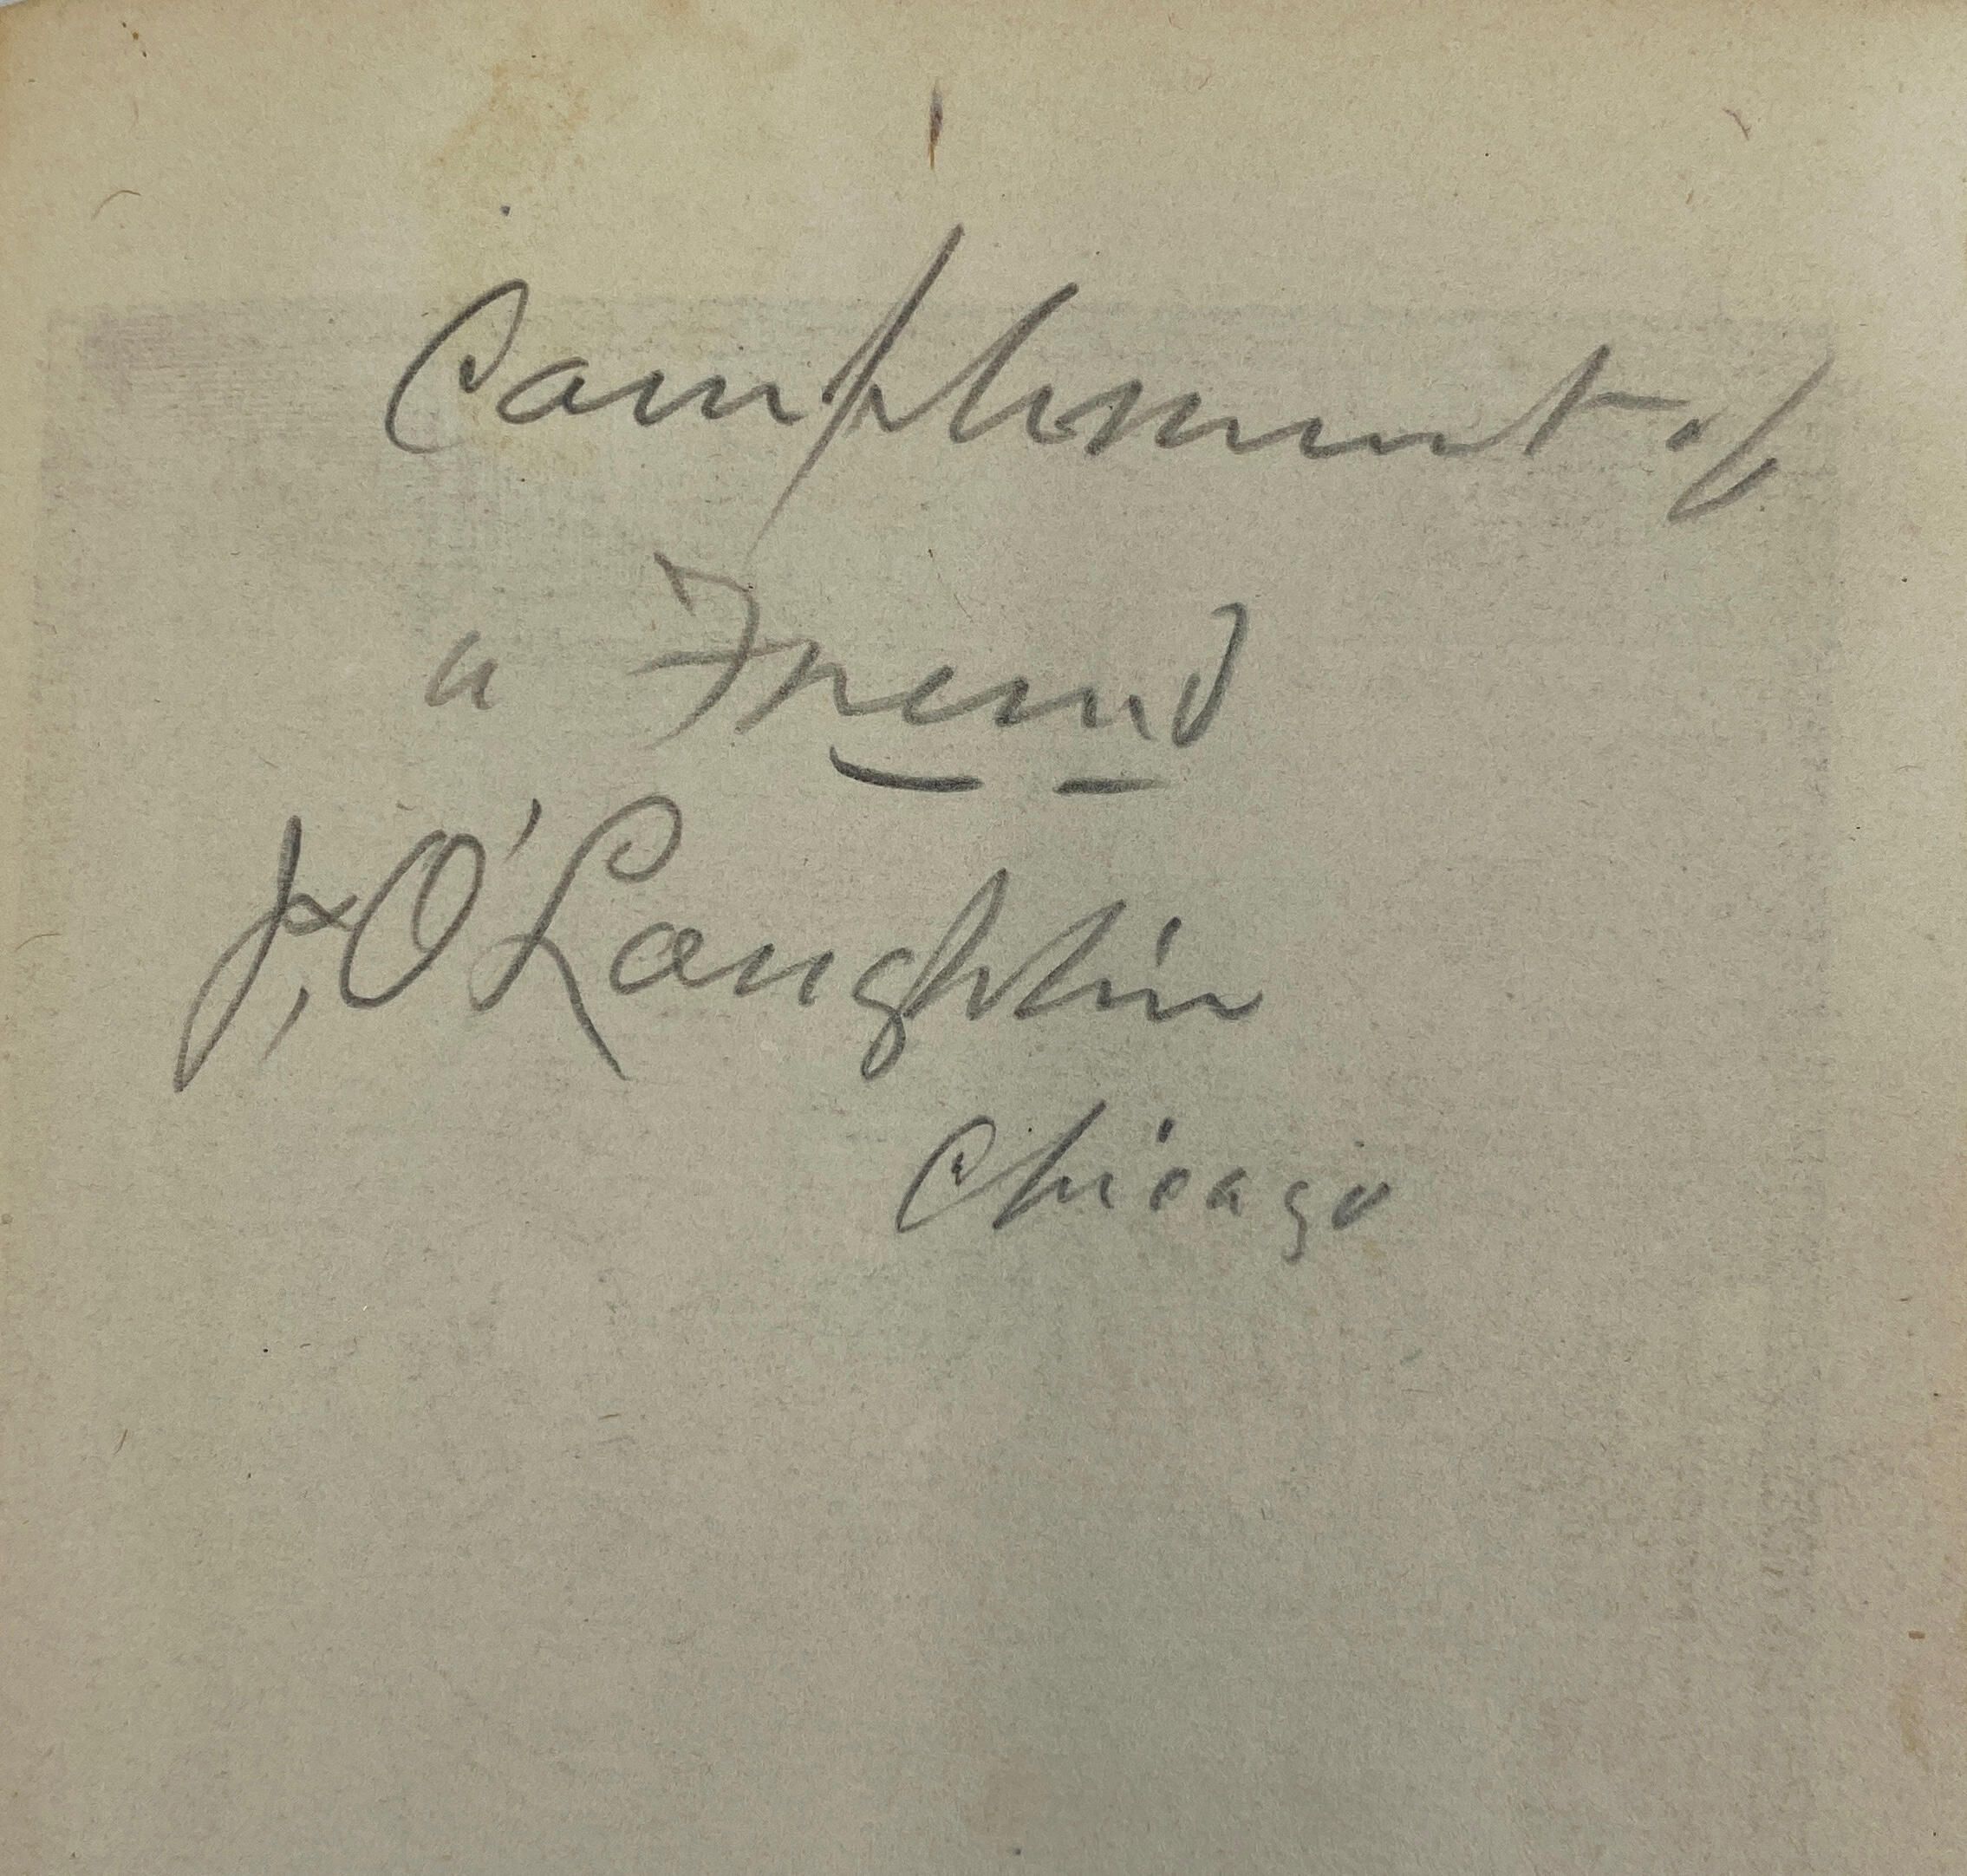 Compliment of
a Friend
J. O'Laughlin
Chicago